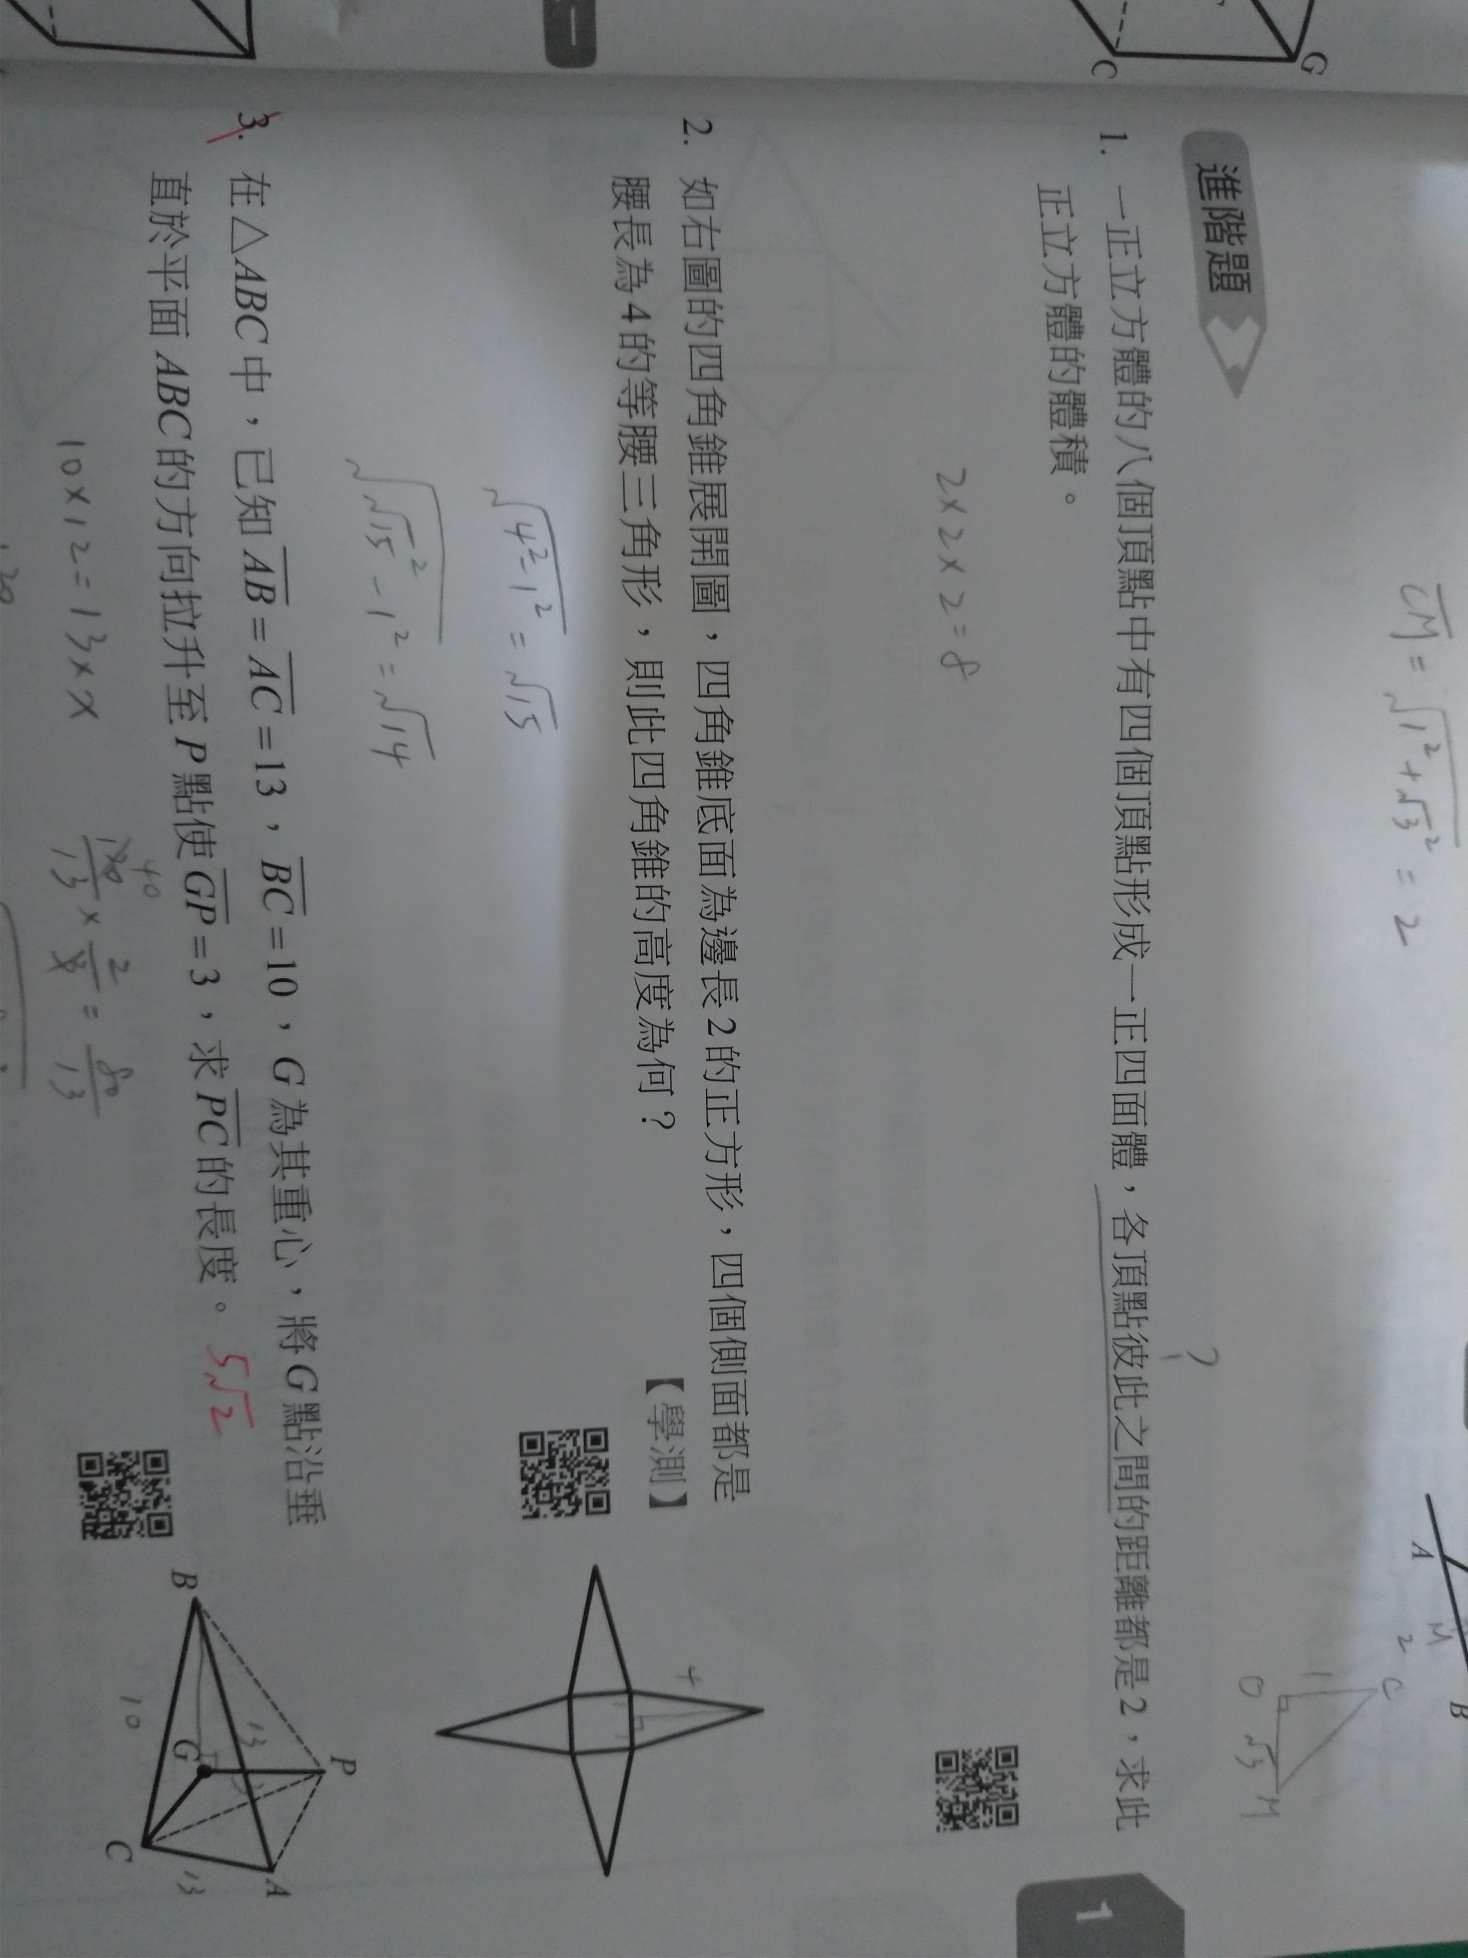 G
C
一
CM = √1²+√3² = 2
A
M
B
2
C
1
O
√3
M
進階題
1. 一正立方體的八個頂點中有四個頂點形成一正四面體，各頂點彼此之間的距離都是2，求此
正立方體的體積。
?
2×2×2=8
2. 如右圖的四角錐展開圖，四角錐底面為邊長2的正方形，四個側面都是
腰長為4的等腰三角形，則此四角錐的高度為何？
【學測】
√4²-1² = √15
√√15²-1² = √14
4
1
3. 在△ABC中，已知AB=AC=13，BC=10，G為其重心，將G點沿垂
直於平面ABC的方向拉升至P點使GP=3，求PC的長度。
5√2
10×12=13×x
40
120/13 × 2/3 = 80/13
P
B
13
G
A
10
C
13
1